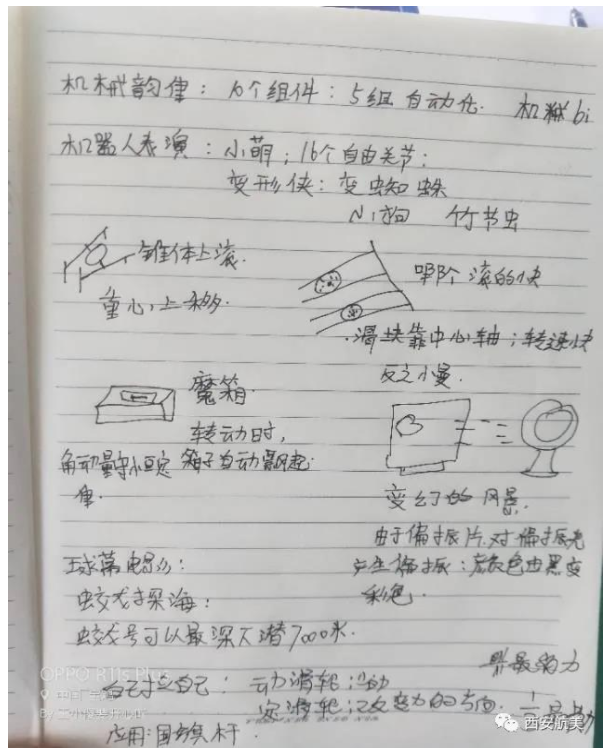 机械韵律：10个组件：5组 自动化. 机械bi
机器人表演：小萌；16个自由关节；
变形侠：变蜘蛛
小狗 竹节虫
锥体上滚.
重心上移.
哪个滚的快
滑块靠中心轴；转速快
反之小慢.
魔箱.
转动时，
角动量守恒定 箱子自动飘起
律.
变幻的风景.
由于偏振片对偏振光
产生偏振：颜色由黑变
彩色.
球幕电影：
蛟龙探海：
蛟龙号可以最深下潜7000米.
最省力
自己拉自己：动滑轮；省力
定滑轮；改变力的方向.
应用：国旗杆.
OPPO R11s Plus
西安航美